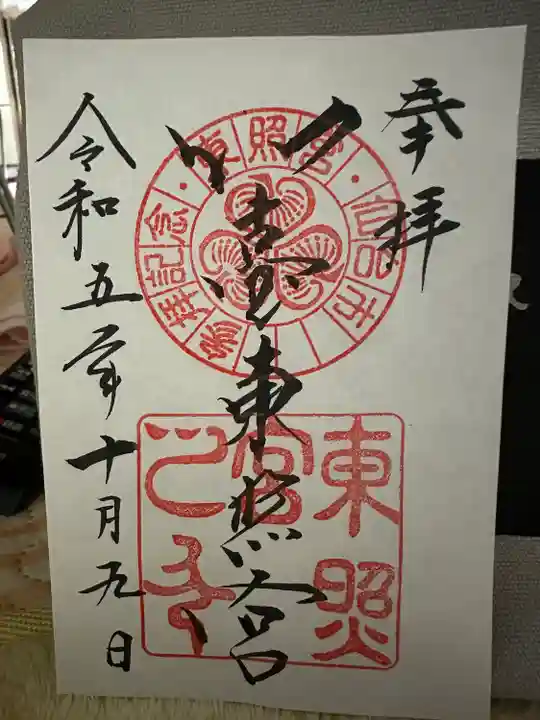 奉拝
仙臺東照宮
令和五年十月九日
東照宮・仙台市
參拝記念・
東照宮之印